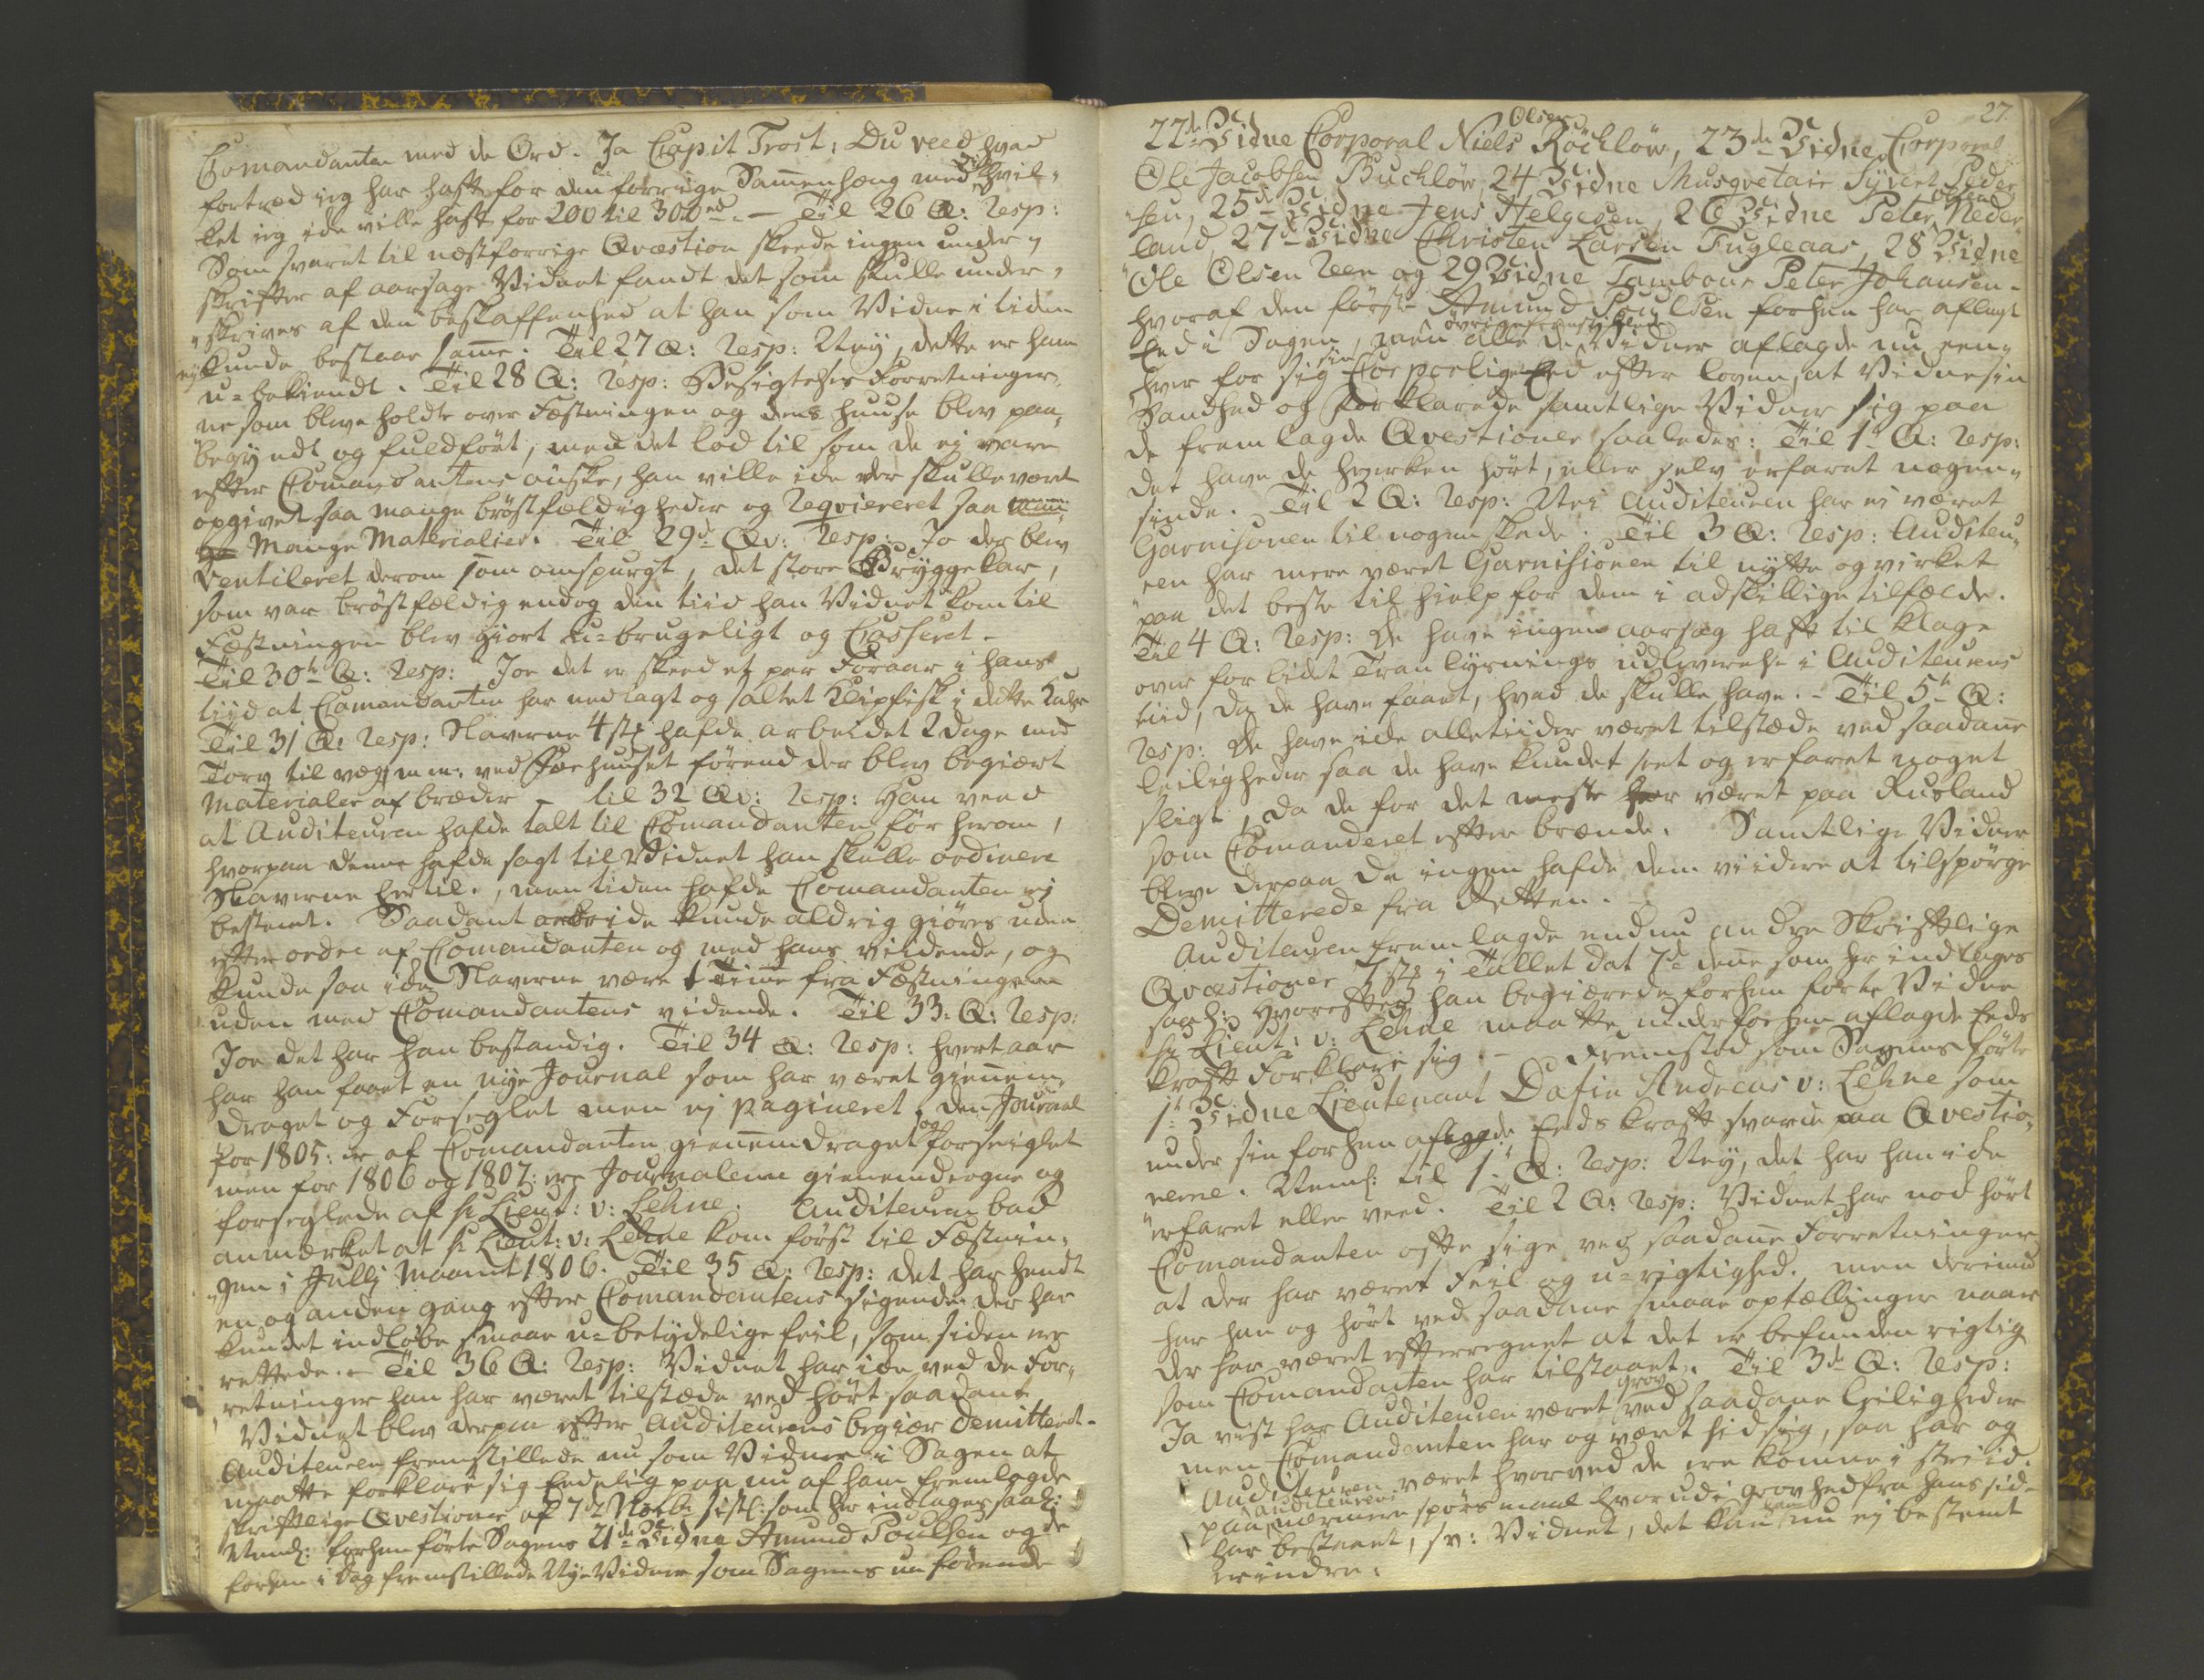 Comandanten med de Ord. Ja Capit Trost, Du veed hvad
fortræd ieg har hafft for den forrige Sammenhæng med dette hvil-
ket ieg icke ville hafft for 200 til 300 rd. – Til 26 Q: Resp:
Som svaret til næstforrige Qvæstion skeede ingen under-
skrifter af aarsage Vidnet fandt det som skulle under-
skrives af den beskaffenhed at han som Vidne i tiden
ej kunde bestaae samme. Til 27 Q: Resp: Ney, dette er ham
u-bekiendt. Til 28 Q: Resp: Besigtelses Forretninger-
ne som bleve holdte over Fæstningen og dens huuse blev paa-
begyndt og fuldført, men det lod til som de ej vare
efter Comandantens ønske, han ville icke der skulle været
opgivet saa mange brøstfældigheder og Reqvireret saa
Mange Materialier. Til 29d Qv: Resp: Jo der blev
Ventileret derom som omspurgt, det store Bryggekar,
som var brøstfældig endog den tiid han Vidnet kom til
Fæstningen blev giort u-brugeligt og Casseret.
Til 30te Q: Resp: Joe det er skeed et par Foraar i hans
tiid at Comandanten har nedlagt og saltet Klipfisk i dette Kar
Til 31 Q: Resp: Slaverne 4 stk hafde arbeidet 2 Dage med
Torv til væg m m: ved Foehuuset førend der blev begiært
Materialer af bræder – til 32 Qv: Resp: Han veed
at Auditeuren hafde talt til Comandanten før herom,
hvorpaa denne hafde sagt til Vidnet han skulle ordinere
Slaverne hertil, men tiden hafde Comandanten ej
bestemt. Saadant arbeide kunde aldrig giøres uden
efter ordre af Comandanten og med hans viidende, og
kunde saa icke Slaverne være 1 Time fra Fæstningen
uden med Comandantens vidende. Til 33. Q: Resp:
Joe det har han bestandig. Til 34 Q: Resp: hvert aar
har han faaet en nye Journal som har været giennem-
draget og Forseglet men ej pagineret, den Journal
for 1805: er af Comandanten giennemdraget og forseiglet
men for 1806 og 1807: ere Journalerne giennemdragne og
forseglede af hr Lieut: v: Lehne. Auditeuren bad
anmærket at hr Lieut: v: Lehne kom først til Fæstnin-
gen i Julij Maanet 1806. Til 35 Q: Resp: det har hendt
en og anden gang efter Comandantens sigende der har
kundet indløbe smaae u-betydelige feil, som siden ere
rettede. – Til 36 Q: Resp: Vidnet har icke ved de For-
retninger han har været tilstæde ved hørt saadant
Vidnet blev derpaa efter Auditeurens begiær Demitteret.
Auditeuren fremstillede nu som Vidner i Sagen at
maatte forklare sig Eedelig paa nu af ham fremlagde
skriftlige Qvestioner af 7de som her indtages saal:
Neml: forhen førte Sagens 21de Vidne Amund Poulsen og de
forhen i Dag fremstillede Nye Vidner som Sagens nu førende
27.
22de Vidne Corporal Niels Olsen Röchlöw, 23de Vidne Corporal
Ole Jacobsen Buchlöw, 24 Vidne Musqvetair Syvert Peder
sen, 25de Vidne Jens Helgesen, 26 Vidne Peter Olsen Neder
land, 27de Vidne Christen Larsen Fugleaas, 28 Vidne
Ole Olsen Reen og 29 Vidne Tambour Peter Johansen.
hvoraf den første Amund Poulsen forhen har aflagt
Eed i Sagen, men alle de øvrige fremstillede Vidner aflagde nu een-
hver for sig sin Corporlige Eed efter loven, at Vidne sin
Sandhed og forklarede samtlige Vidner sig paa
de fremlagde Qvestioner saaledes: Til 1te Q: Resp:
det have de hverken hørt, eller selv erfaret nogen-
sinde. Til 2 Q: Resp: Nei Auditeuren har ei været
Garnisonen til nogen skade. Til 3 Q: Resp: Auditeu-
ren har mere været Garnisonen til nytte og virket
paa det beste til hielp for dem i adskillige tilfælde.
Til 4 Q: Resp: De have ingen aarsag hafft til Klage
over for lidet Tran lysnings udleverelse i Auditeurens
tiid, da de have faaet, hvad de skulle have. – Til 5te Q:
Resp: De have icke alletiider været tilstæde ved saadanne
leiligheder saa de have kundet seet og erfaret noget
sligt, da de for det meste har været paa Rusland
som Comanderet efter brænde. Samtlige Vidner
bleve derpaa da ingen hafde dem viidere at tilspørge
Demitterede fra Retten.
Auditeuren fremlagde endnu andre Skriftlige
Qvæstioner 7 stk i Tallet dat 7de denne som her indtages
saal: Hvorefter han begiærede forhen førte Vidne
hr Lieut: v: Lehne maatte under forhen aflagde Eeds
kraft Forklare sig. – Fremstod som Sagens førte
1te Vidne Lieutenant Dafin Andreas v: Lehne som
under sin forhen aflagde Eeds kraft svarede paa Qvestio-
nerne. Neml: til 1te Q: Resp: Ney, det har han icke
erfaret eller veed. Til 2 Q: Resp: Vidnet har nok hørt
Comandanten ofte sige ved saadane Forretninger
at der har været Feil og u-rigtighed. men derimod
har han og hørt ved saadane smaae optællinger naar
der har været efterregnet at det er befunden rigtig
som Comandanten har tilstaaet. Til 3de Q: Resp:
Ja vist har Auditeuren været grov ved saadane leiligheder
men Comandanten har og vært hidsig, saa har og
Auditeuren været hvorved de ere komne i striid.
paa Auditeurens nærmere spørsmaal hvorudi grovhed fra hans sid-
har bestaaet, sv: Vidnet, det kan han nu ej bestemt
erindre.